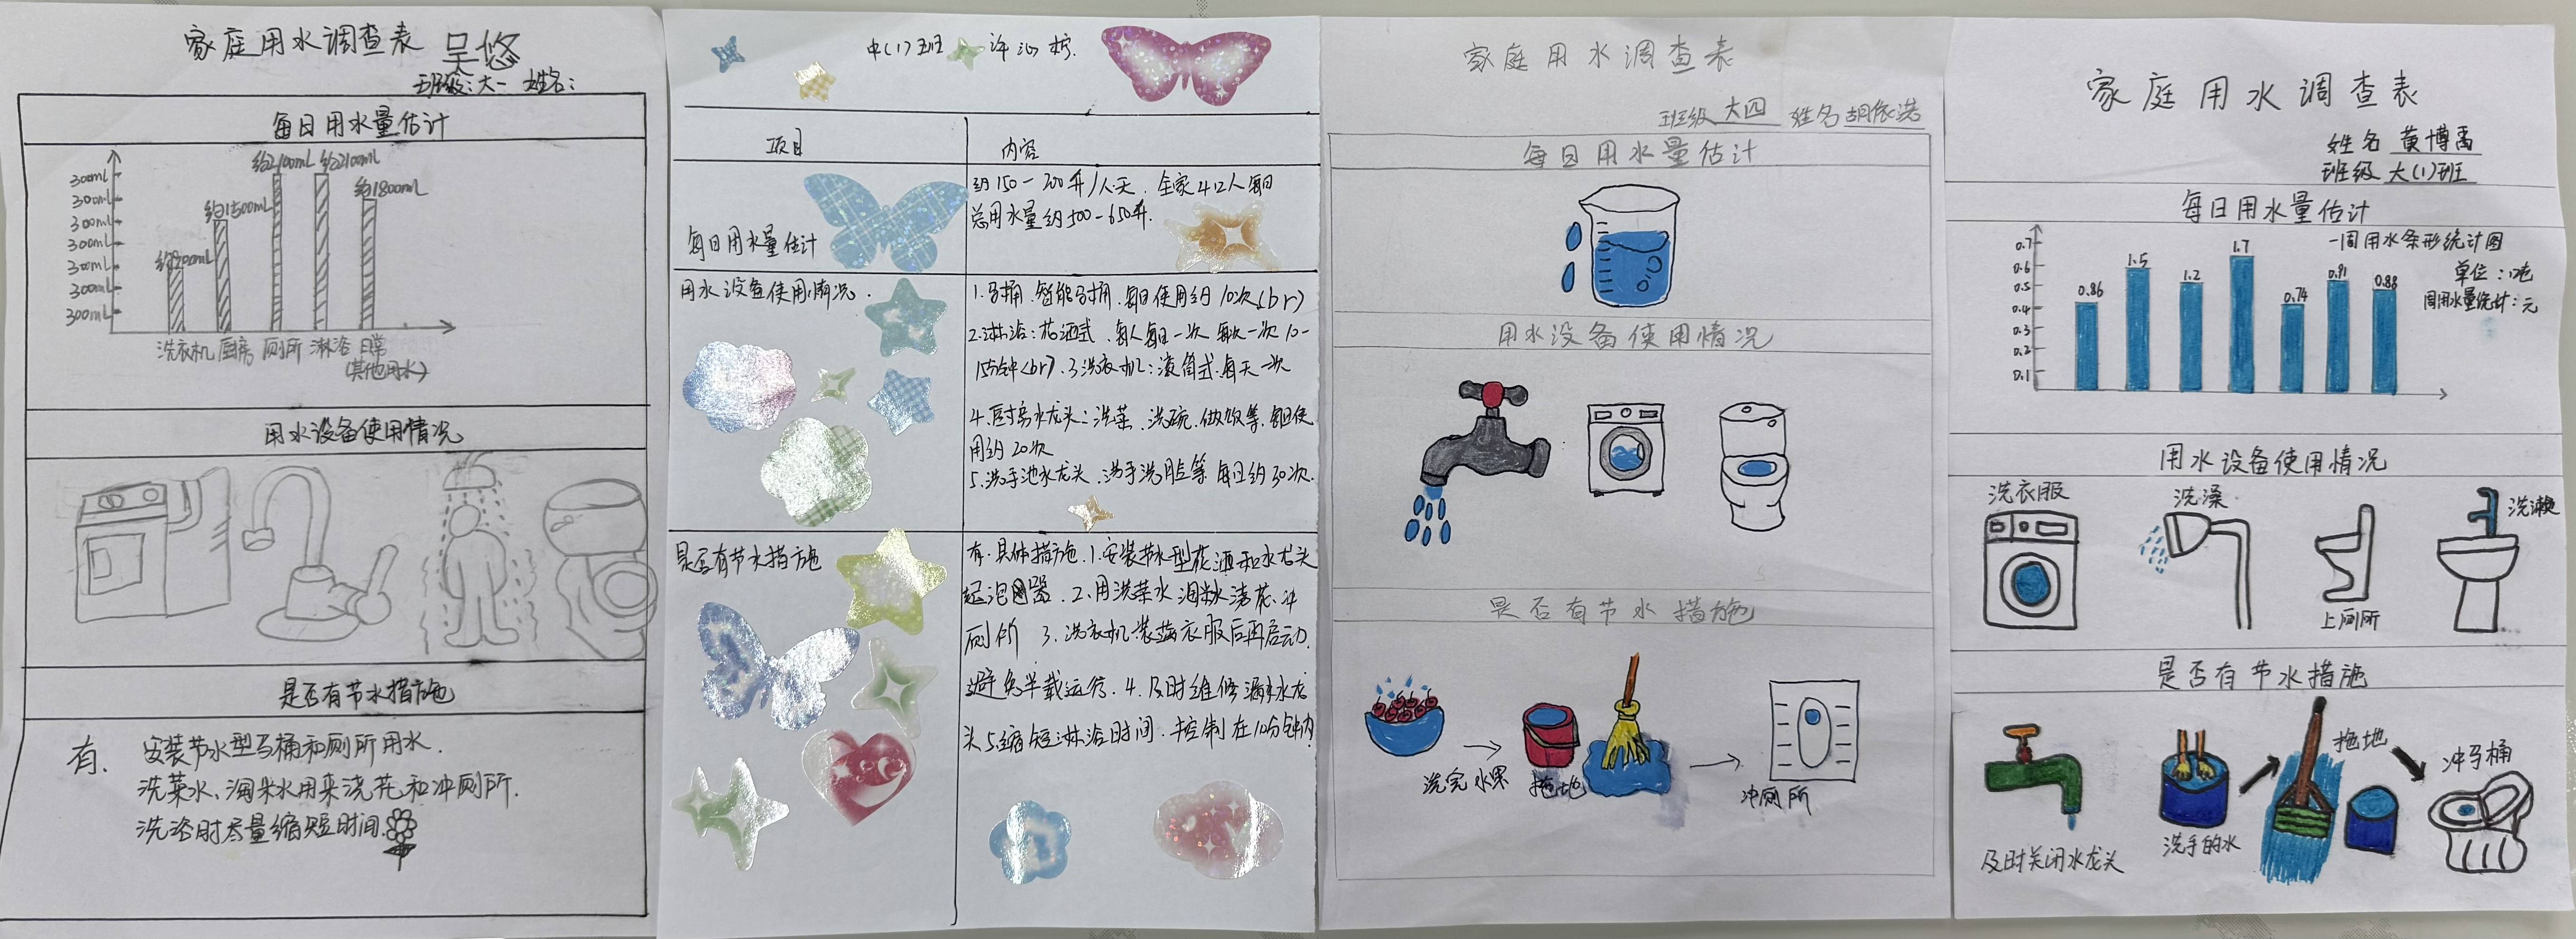 家庭用水调查表 吴悠
班级:大一 姓名:
每日用水量估计
约2100mL 约2100mL
约1800mL
约1500mL
约900mL
300mL
300mL
300mL
300mL
300mL
300mL
300mL
洗衣机 厨房 厕所 淋浴 日常
(其他用水)
用水设备使用情况
是否有节水措施
有. 安装节水型马桶和厕所用水.
洗菜水、淘米水用来浇花和冲厕所.
洗浴时尽量缩短时间.
中(1)班 许沁柠.
项目 内容
每日用水量估计
约150-200升/人天. 全家4口人每日
总用水量约500-650升.
用水设备使用情况.
1.马桶.智能马桶.每日使用约10次(br)
2.淋浴:花洒式.每人每日一次 每次一次10-
15分钟<br>.3.洗衣机:滚筒式.每天一次
4.厨房水龙头:洗菜.洗碗.做饭等.每日使
用约20次
5.洗手池水龙头.洗手洗脸等 每日约30次.
是否有节水措施
有.具体措施.1.安装节水型花洒和水龙头
起泡器.2.用洗菜水 淘米水 浇花.冲
厕所 3.洗衣机装满衣服后再启动.
避免半载运行.4.及时维修漏水水龙
头.5.缩短淋浴时间.控制在10分钟内.
家庭用水调查表
班级 大四 姓名 胡依浩
每日用水量估计
用水设备使用情况
是否有节水措施
洗完水果 拖地 冲厕所
家庭用水调查表
姓名 黄博禹
班级 大(1)班
每日用水量估计
一周用水条形统计图
单位:吨
周用水量统计:元
0.7
0.6
0.5
0.4
0.3
0.2
0.1
0.86 1.5 1.2 1.7 0.74 0.91 0.88
用水设备使用情况
洗衣服 洗澡 上厕所 洗漱
是否有节水措施
及时关闭水龙头 洗手的水 拖地 冲马桶